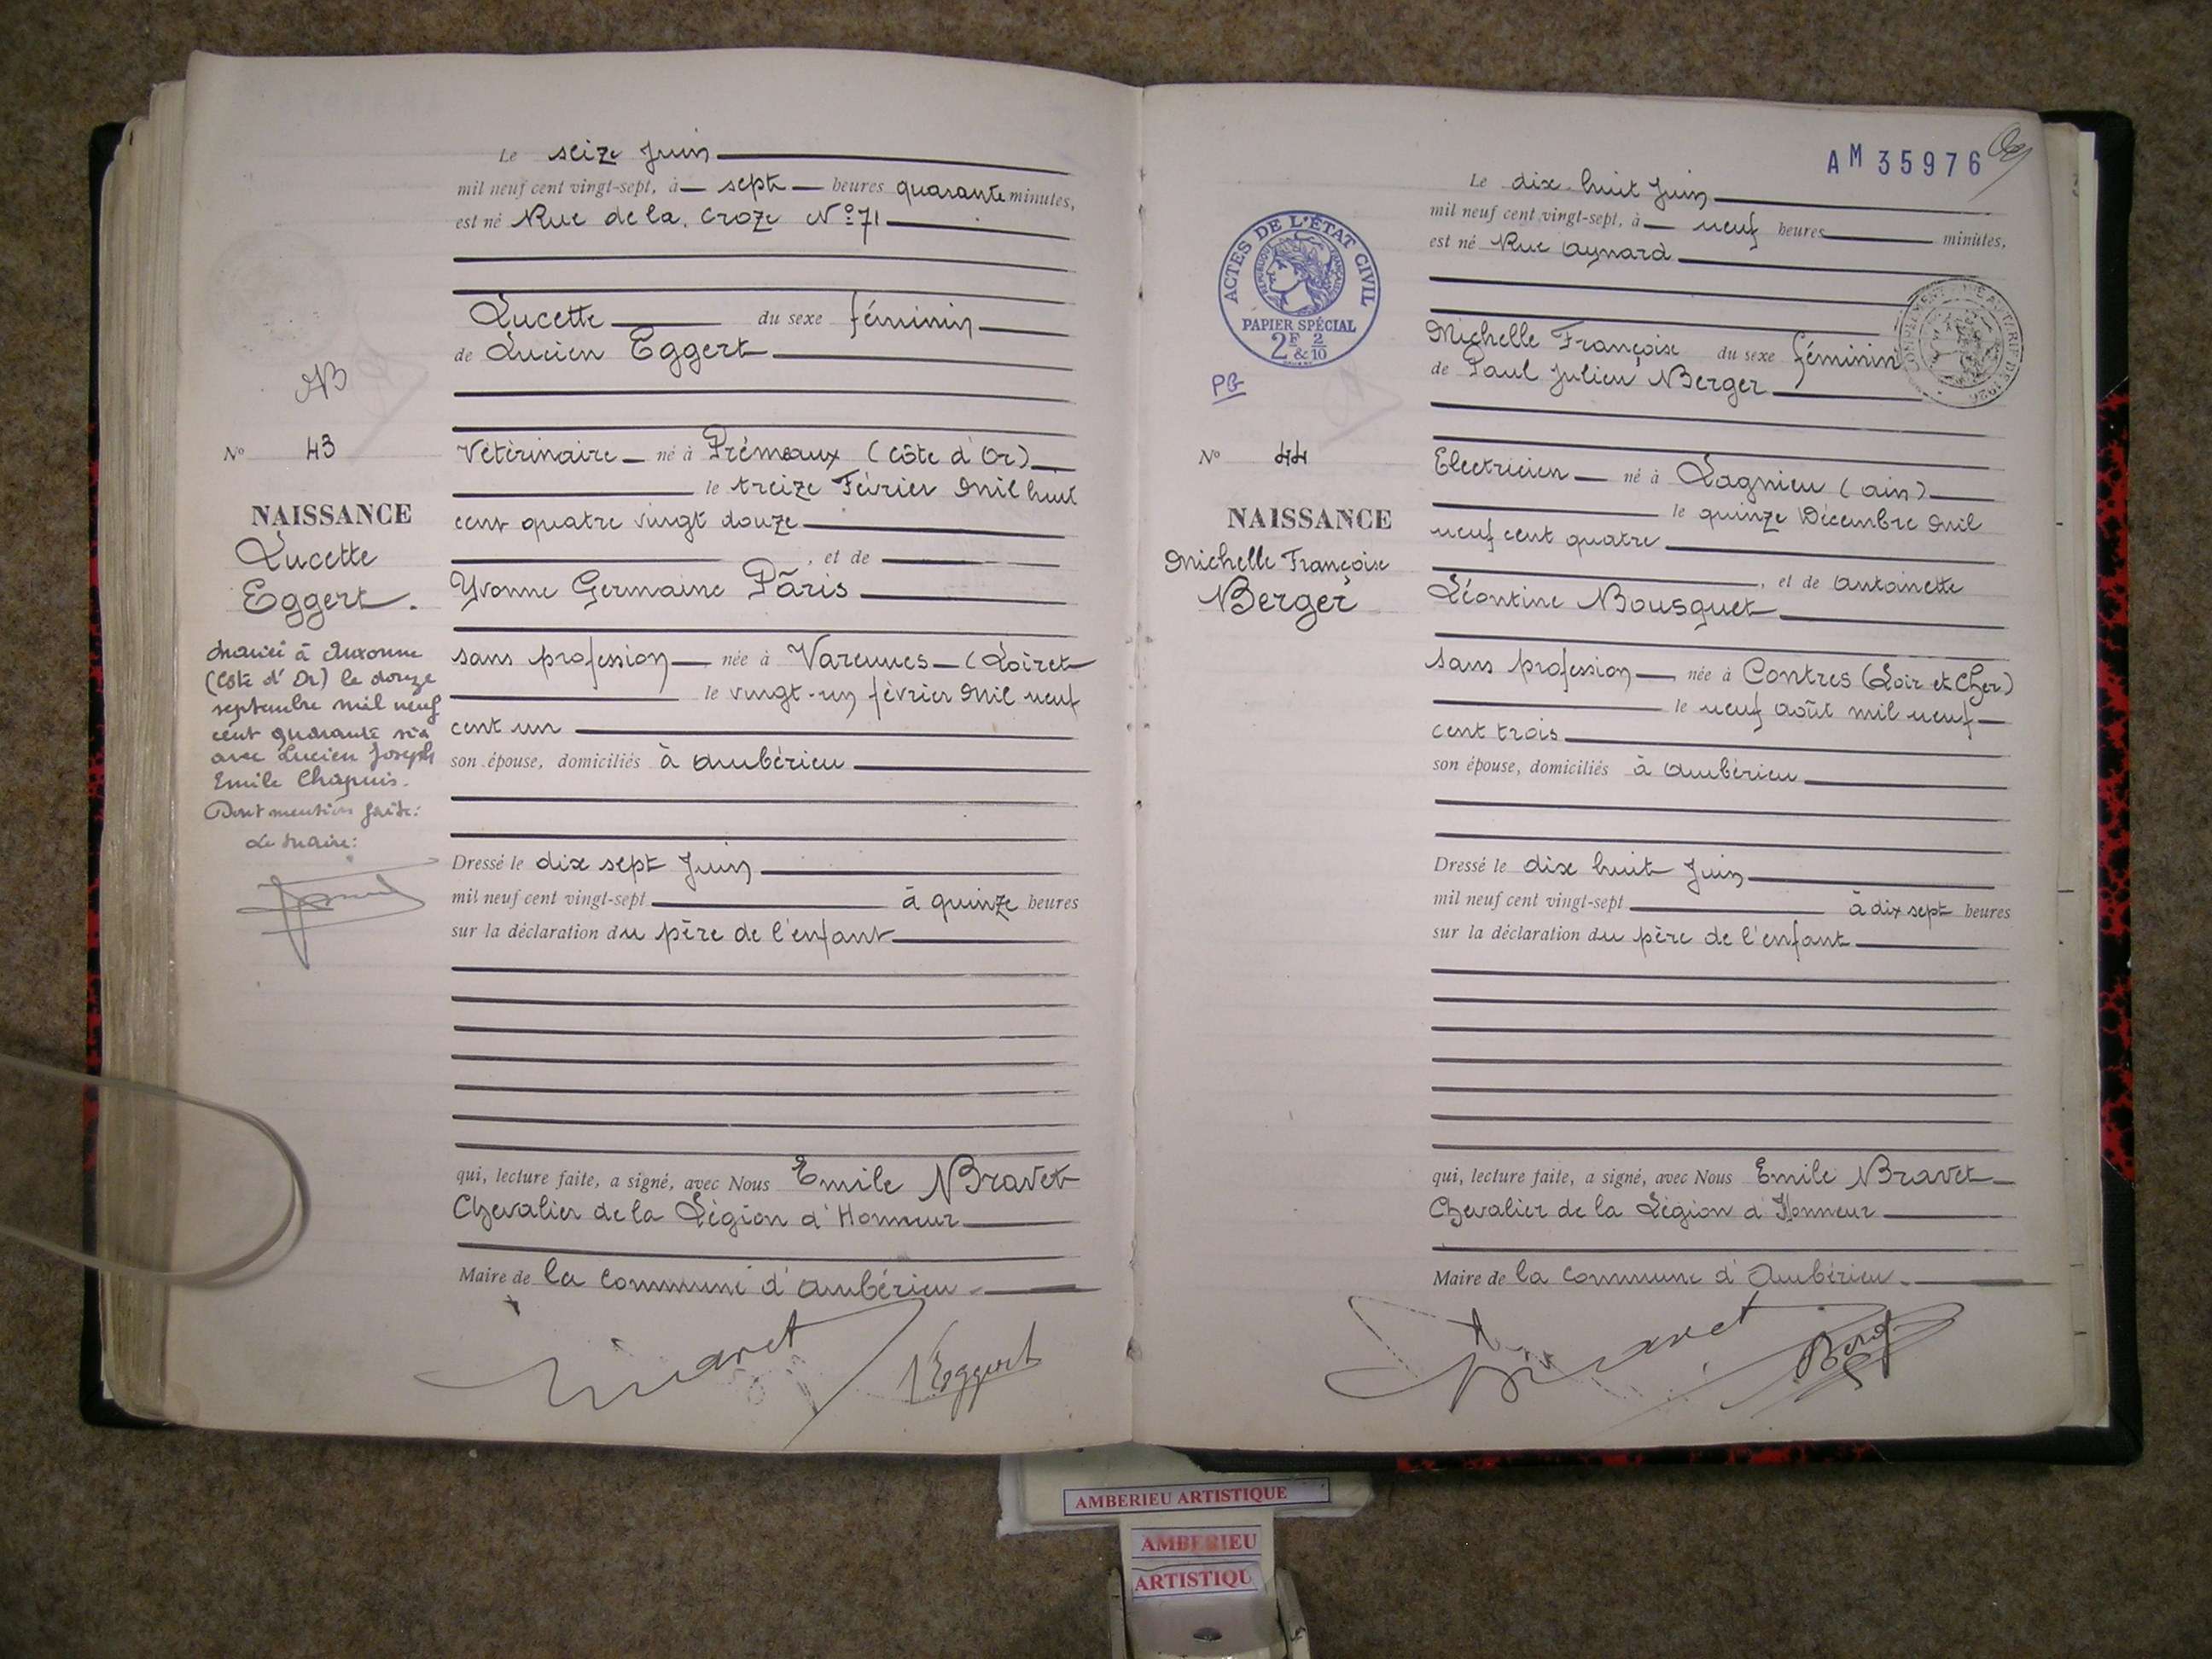 Le seize Juin
mil neuf cent vingt-sept, à sept heures quarante minutes,
est né Rue de la Croze Nº 71
Lucette du sexe féminin
de Lucien Eggert
Vétérinaire né à Prémeaux (Côte d'Or)
le treize Février mil huit
cent quatre vingt douze
, et de
Yvonne Germaine Pâris
sans profession née à Varennes (Loiret
le vingt-un février mil neuf
cent un
son épouse, domiciliés à Ambérieu
Dressé le dix sept Juin
mil neuf cent vingt-sept à quinze heures
sur la déclaration du père de l'enfant
qui, lecture faite, a signé, avec Nous Emile Bravet
Chevalier de la Légion d'Honneur
Maire de la commune d'Ambérieu
Bravet
Eggert
AB
Nº 43
NAISSANCE
Lucette
Eggert.
Mariée à Auxonne
(Côte d'Or) le douze
septembre mil neuf
cent quarante six
avec Lucien Joseph
Emile Chapuis.
Dont mention faite:
Le Maire:
AM 35976
Le dix-huit Juin
mil neuf cent vingt-sept, à neuf heures minutes,
est né Rue Aynard
Michelle Françoise du sexe féminin
de Paul Julien Berger
Electricien né à Lagnieu (Ain)
le quinze Décembre mil
neuf cent quatre
, et de Antoinette
Léontine Bousquet
sans profession née à Contres (Loir et Cher)
le neuf Août mil neuf
cent trois
son épouse, domiciliés à Ambérieu
Dressé le dix huit Juin
mil neuf cent vingt-sept à dix sept heures
sur la déclaration du père de l'enfant
qui, lecture faite, a signé, avec Nous Emile Bravet
Chevalier de la Légion d'Honneur
Maire de la commune d'Ambérieu.
Bravet
ACTES DE L'ÉTAT CIVIL
RÉPUBLIQUE FRANÇAISE
PAPIER SPÉCIAL
2F & 2/10
PB
Nº 44
NAISSANCE
Michelle Françoise
Berger
AMBERIEU ARTISTIQUE
AMBERIEU
ARTISTIQU